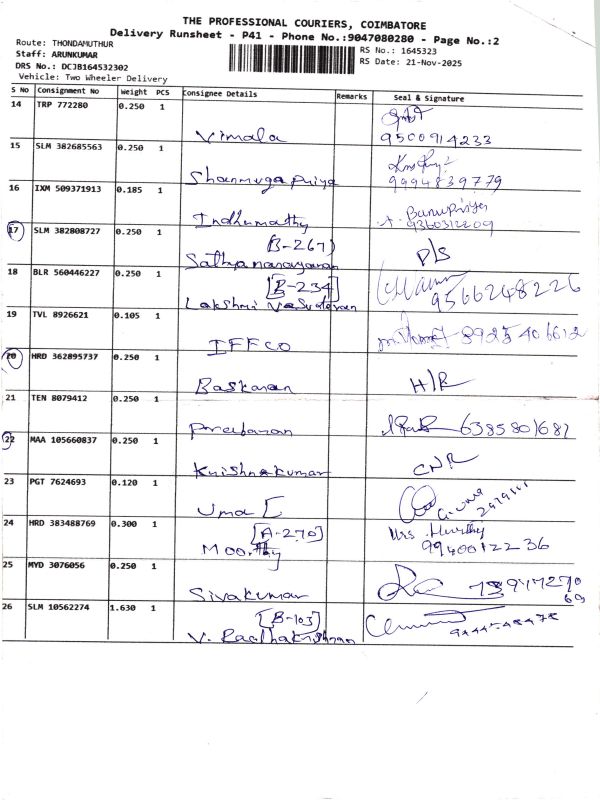 THE PROFESSIONAL COURIERS, COIMBATORE
Delivery Runsheet - P41 - Phone No.:9047080280 - Page No.:2
Route: THONDAMUTHUR
Staff: ARUNKUMAR
DRS No.: DCJB164532302
Vehicle: Two Wheeler Delivery
RS No.: 1645323
RS Date: 21-Nov-2025
S No Consignment No Weight PCS Consignee Details Remarks Seal & Signature
14 TRP 772280 0.250 1
Vimala 9500914233
15 SLM 382685563 0.250 1
Shanmuga Priya 9994839779
16 IXM 509371913 0.185 1
Indhumathy Banupriya 9360312209
17 SLM 382808727 0.250 1
[B-267] P/S
Sathya narayanan
18 BLR 560446227 0.250 1
[B-234] 9566248226
Lakshmi Vasudevan
19 TVL 8926621 0.105 1
IFFCO 8925406612
20 HRD 362895737 0.250 1
Baskaran H/R
21 TEN 8079412 0.250 1
Prabaran 6385801681
22 MAA 105660837 0.250 1
Krishnakumar CNR
23 PGT 7624693 0.120 1
Uma [
24 HRD 383488769 0.300 1
[A-270] Mrs. Murthy
Moorthy 9940012236
25 MYD 3076056 0.250 1
Sivakumar
26 SLM 10562274 1.630 1
[B-103]
V. Radhakrishnan